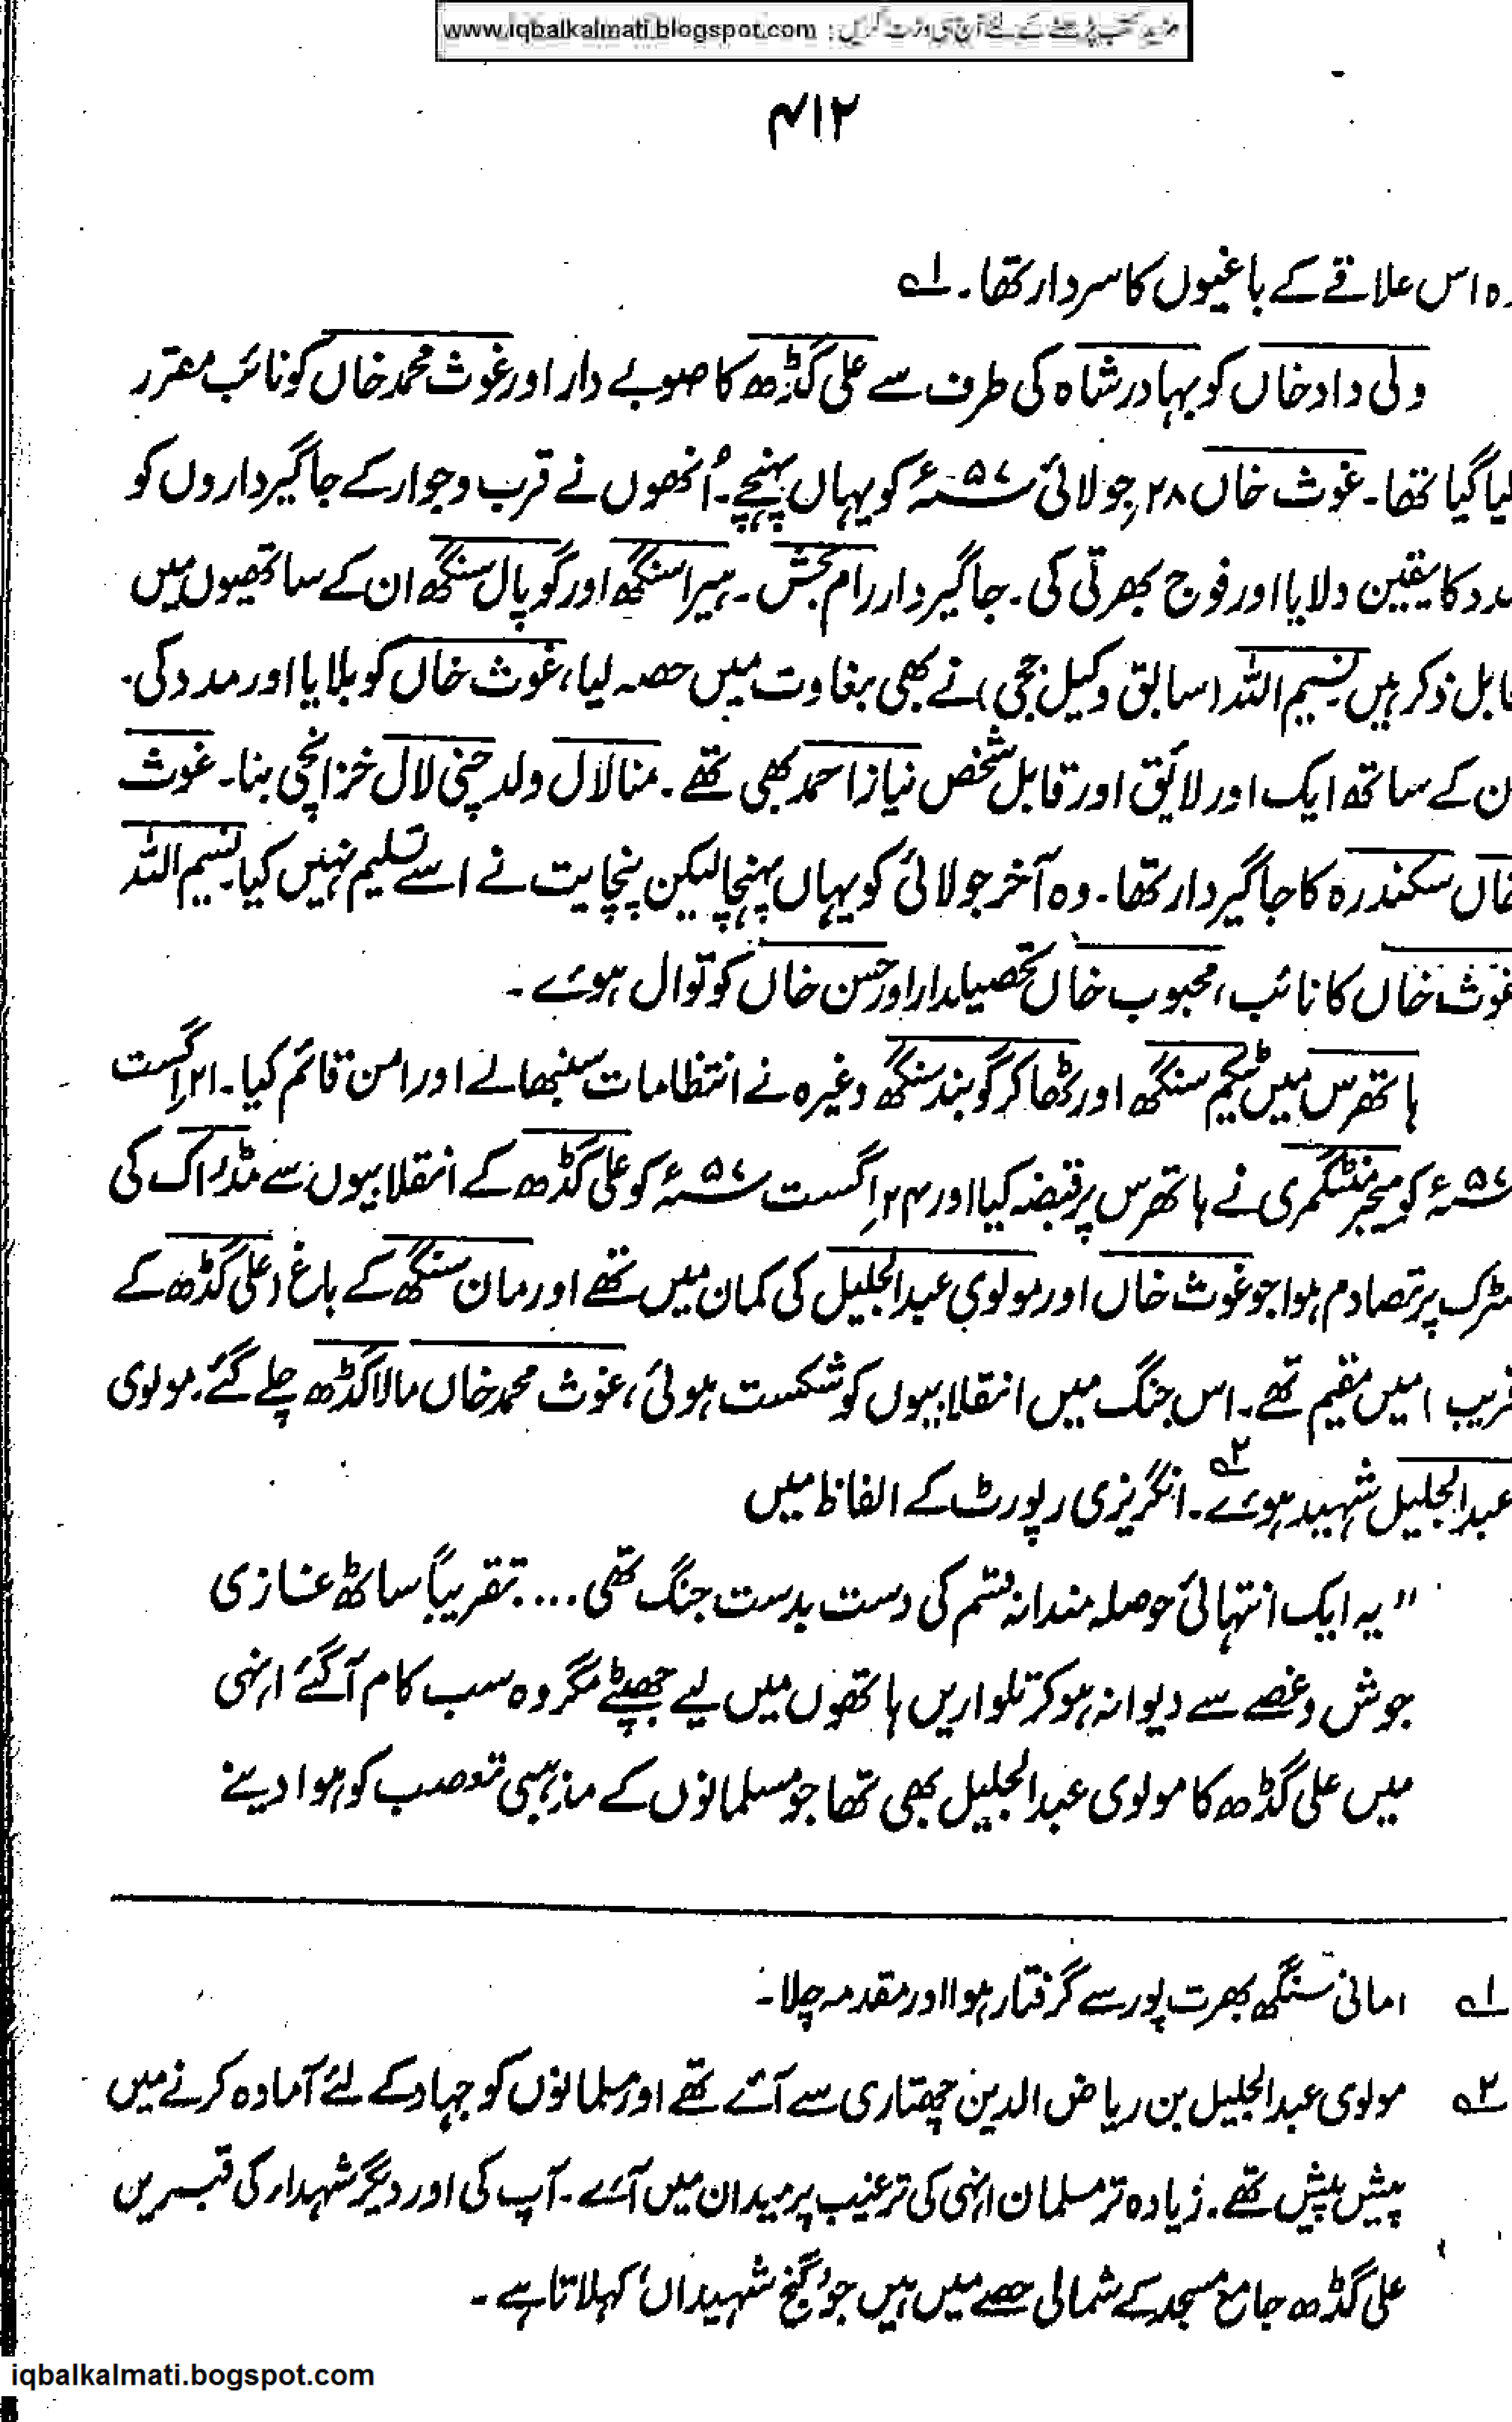 مزید کتب پڑھنے کے لئے آج ہی وزٹ کریں : www.iqbalkalmati.blogspot.com
۴۱۲
وہ اس علاقے کے باغیوں کا سردار تھا۔ ۱ے
ولی داد خاں کو بہادر شاہ کی طرف سے علی گڈھ کا صوبے دار اور غوث محمد خاں کو نائب مقرر
کیا گیا تھا۔ غوث خاں ۲۸ جولائی ۵۷ء کو یہاں پہنچے۔ اُنھوں نے قرب و جوار کے جاگیرداروں کو
مدد کا یقین دلایا اور فوج بھرتی کی۔ جاگیردار رام بخش۔ ہیرا سنگھ اور گوپال سنگھ ان کے ساتھیوں میں
قابل ذکر ہیں۔ نسیم اللہ (سابق وکیل ججی) نے بھی بغاوت میں حصہ لیا، غوث خاں کو بلایا اور مدد کی۔
ان کے ساتھ ایک اور لائق اور قابل شخص نیاز احمد بھی تھے۔ منالال ولد چنی لال خزانچی بنا۔ غوث
خاں سکندرہ کا جاگیردار تھا۔ وہ آخر جولائی کو یہاں پہنچا لیکن پنچایت نے اسے تسلیم نہیں کیا۔ نسیم اللہ
غوث خاں کا نائب، محبوب خاں تحصیلدار اور حسن خاں کوتوال ہوئے۔
ہاتھرس میں ٹیکم سنگھ اور ٹھاکر گوبند سنگھ وغیرہ نے انتظامات سنبھالے اور امن قائم کیا۔ ۲۱ اگست
۵۷ء کو میجر منٹگمری نے ہاتھرس پر قبضہ کیا اور ۲۴ اگست ۵۷ء کو علی گڈھ کے انقلابیوں سے مڈراک کی
سڑک پر تصادم ہوا جو غوث خاں اور مولوی عبدالجلیل کی کمان میں تھے اور مان سنگھ کے باغ (علی گڈھ کے
قریب) میں مقیم تھے۔ اس جنگ میں انقلابیوں کو شکست ہوئی، غوث محمد خاں مالاگڈھ چلے گئے۔ مولوی
عبدالجلیل شہید ہوئے۔ ۲ے انگریزی رپورٹ کے الفاظ میں
"یہ ایک انتہائی حوصلہ مندانہ قسم کی دست بدست جنگ تھی.... تقریباً ساٹھ غازی
جوش و غصے سے دیوانہ ہو کر تلواریں ہاتھوں میں لیے جھپٹے مگر وہ سب کام آگئے انہی
میں علی گڈھ کا مولوی عبدالجلیل بھی تھا جو مسلمانوں کے مذہبی تعصب کو ہوا دینے
۱ے امانی سنگھ بھرت پور سے گرفتار ہوا اور مقدمہ چلا۔
۲ے مولوی عبدالجلیل بن ریاض الدین چھتاری سے آئے تھے اور مسلمانوں کو جہاد کے لئے آمادہ کرنے میں
پیش پیش تھے۔ زیادہ تر مسلمان انہی کی ترغیب پر میدان میں آئے۔ آپ کی اور دیگر شہداء کی قبریں
علی گڈھ جامع مسجد کے شمالی حصے میں ہیں جو 'گنج شہیداں' کہلاتا ہے۔
iqbalkalmati.bogspot.com